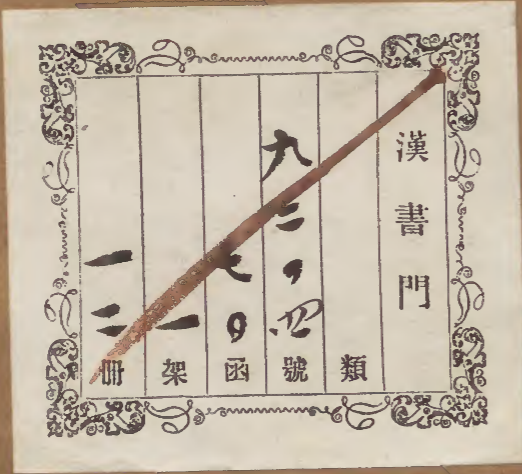 漢書門
類
九二〇四號
七〇函
一架
一二冊